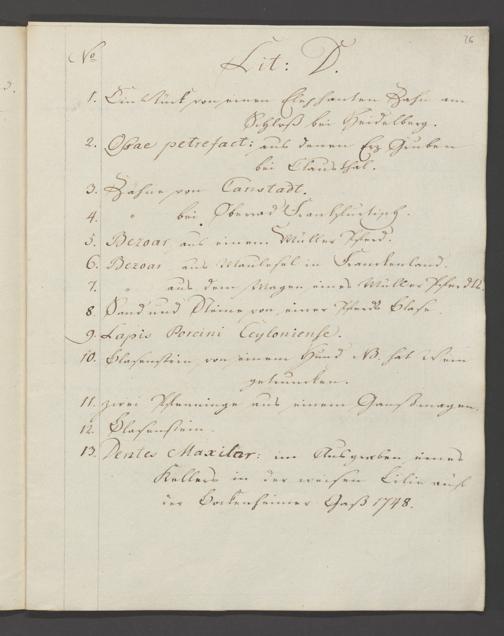 26
No
Lit: D.
1. Ein Stück von einem Elephanten Zahn am
Schloß bei Heidelberg.
2. Ossae petrefact: aus denen Erz Gruben
bei Clausthal.
3. Zähne von Canstadt.
4. " bei Oberrad Frankfurtisch.
5. Bezoar aus einem Müller Pferd.
6. Bezoar aus Maulesel in Frankenland.
7. " aus dem Magen eines Müller Pferdts.
8. Sand und Steine von einer Pferds Blase.
9. Lapis Porcini Ceyloniense.
10. Blasenstein von einem Hund NB. hat Wein
getruncken.
11. zwei Pfenninge aus einem Ganßmagen.
12. Blasenstein.
13. Dentes Maxilar: im Ausgraben eines
Kellers in der weisen Lilie auf
der Bockenheimer Gaß 1748.